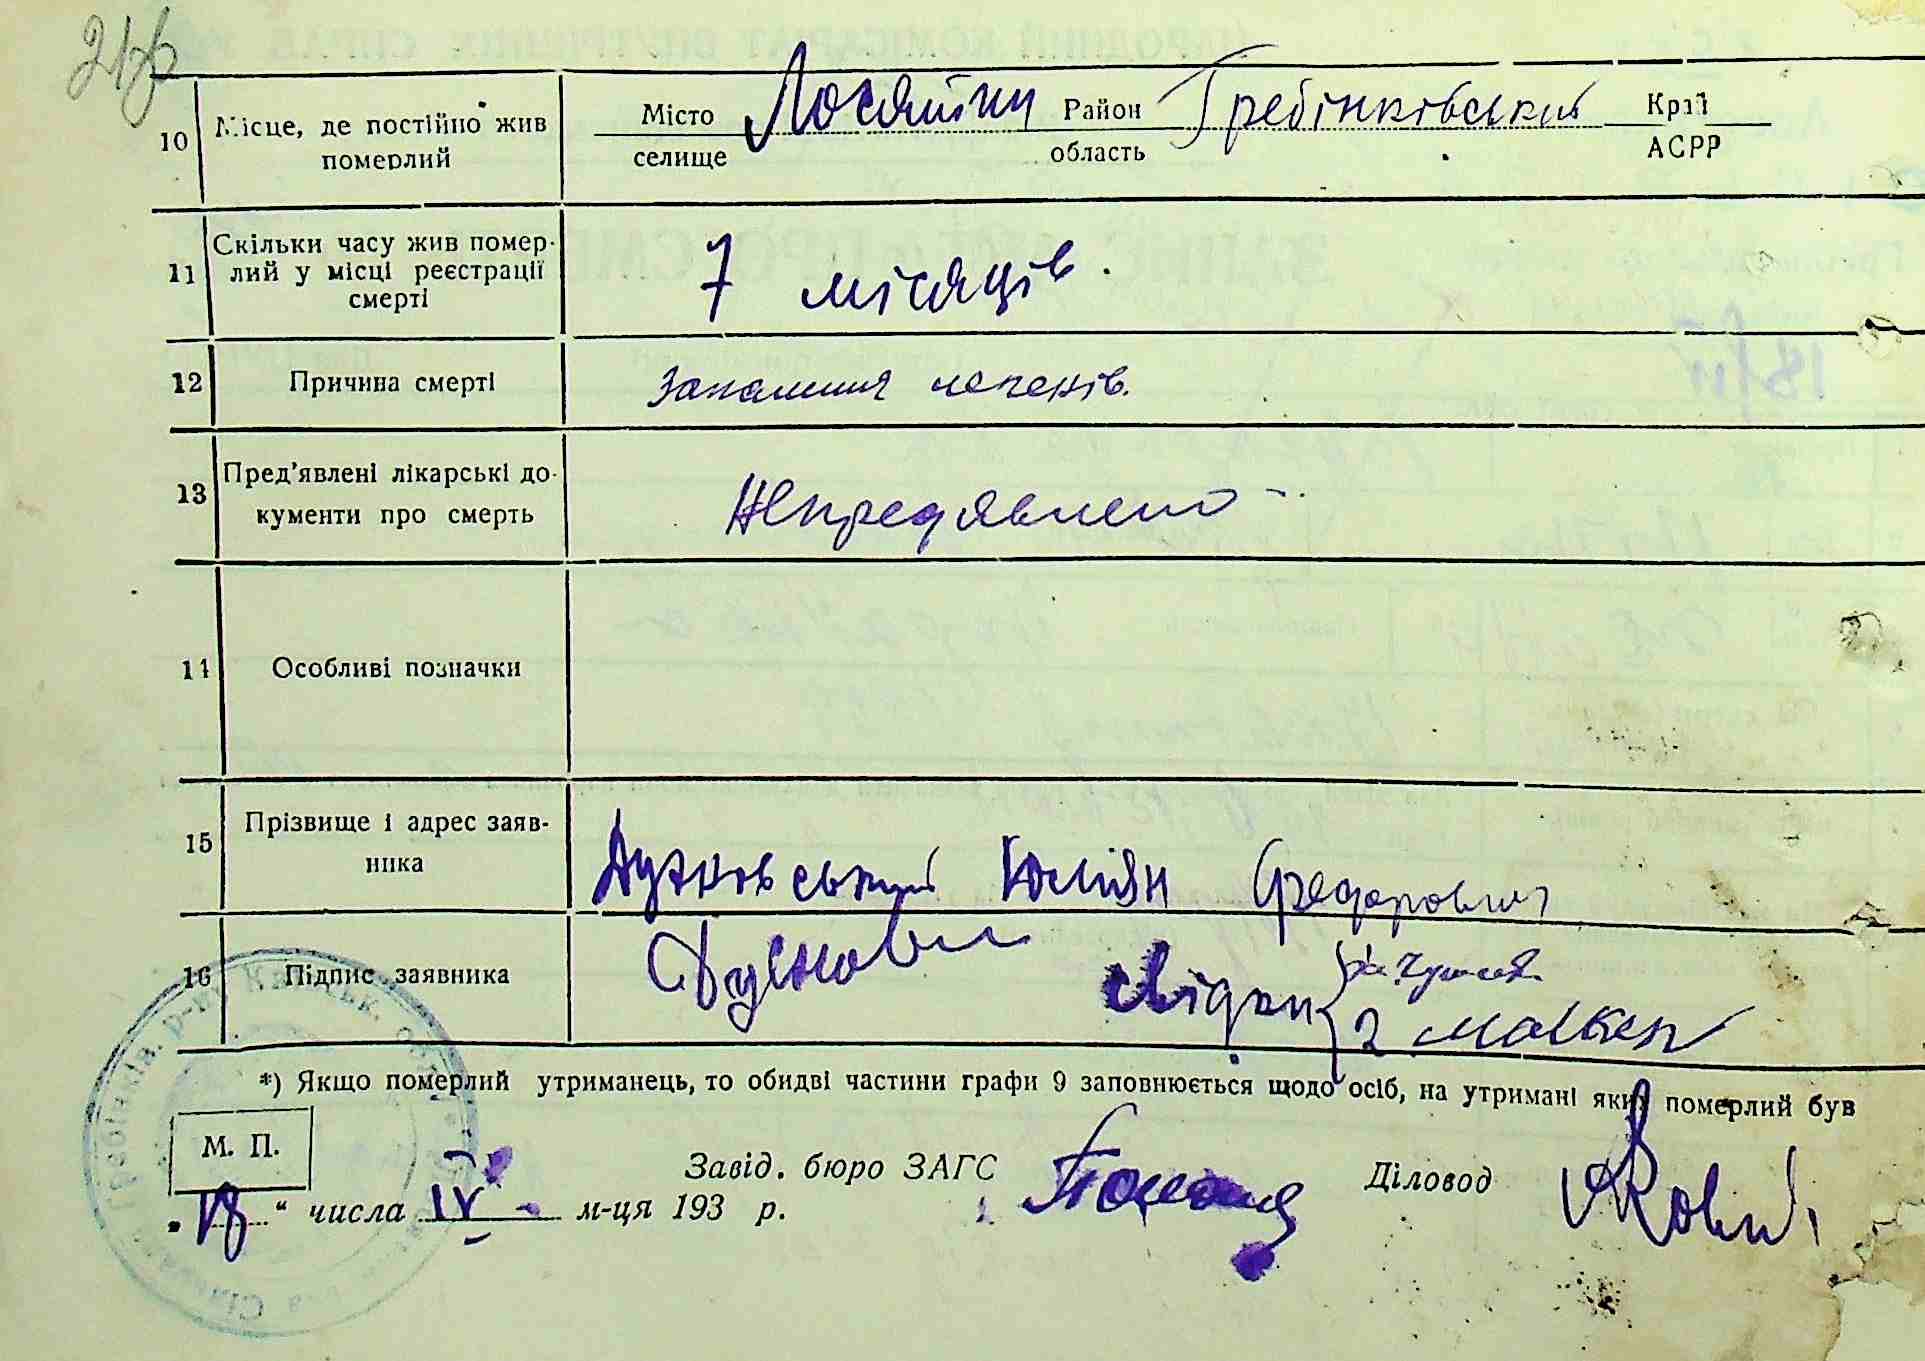 10 Місце, де постійно жив померлий
Місто селище Лосятин Район область Гребінківський Край АСРР
11 Скільки часу жив помер-
лий у місці реєстрації
смерті
7 місяців.
12 Причина смерті
Запаления легенів.
13 Пред'явлені лікарські до-
кументи про смерть
Непредявлено
14 Особливі позначки
15 Прізвище і адрес заяв-
ника
Дутковський Юліян Федорович
16 Підпис заявника
Свідки 1
2
*) Якщо померлий утриманець, то обидві частини графи 9 заповнюється щодо осіб, на утримані яких померлий був
М. П.
Завід. бюро ЗАГС
Діловод
„18“ числа IV м-ця 193 р.